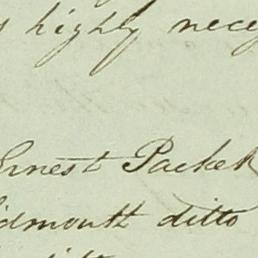 highly nece
Ernest Packet
idmouth ditto